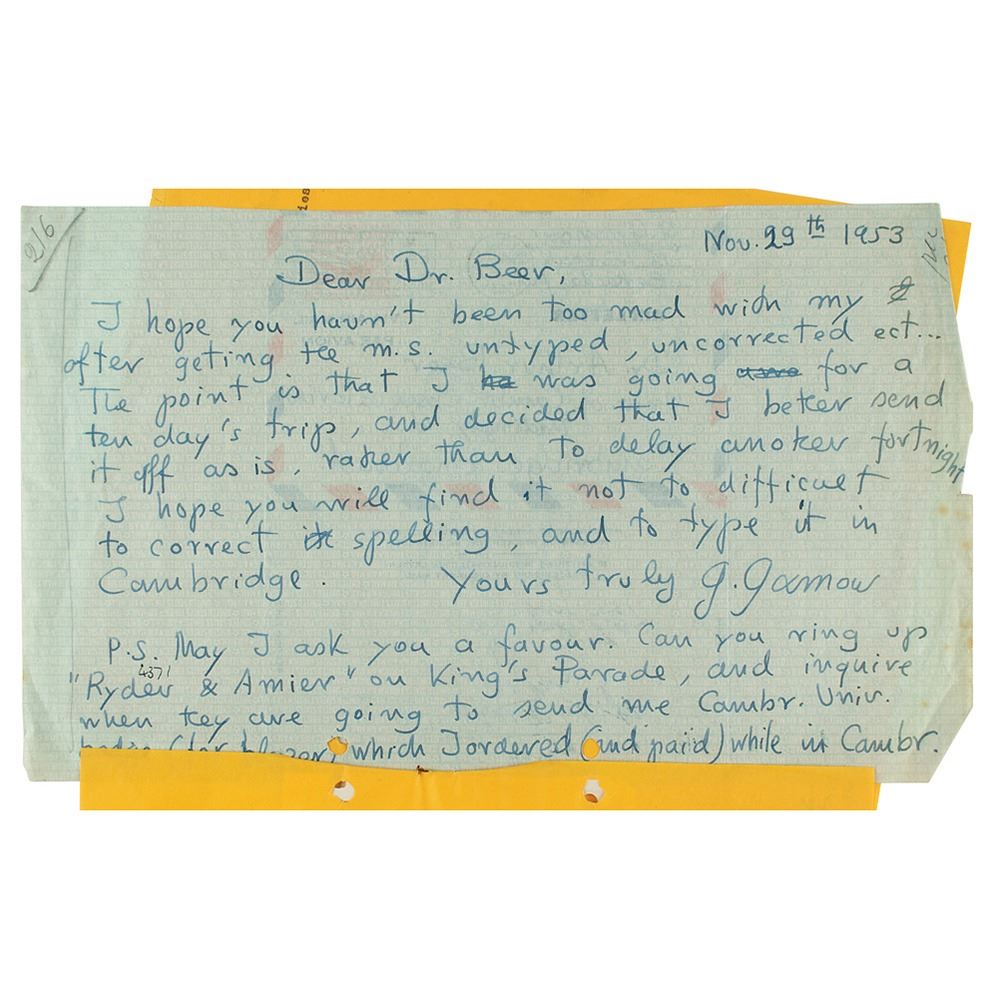 216
Nov. 29th 1953
Dear Dr. Beer,
I hope you havn't been too mad with my
after geting tee m.s. untyped, uncorrected ect...
The point is that I was going for a
ten day's trip, and decided that I beter send
it off as is, rater than to delay anoter fortnight
I hope you will find it not to difficult
to correct spelling, and to type it in
Cambridge. Yours truly G. Gamow
P.S. May I ask you a favour. Can you ring up
4371
"Ryder & Amier" on King's Parade, and inquire
when tey are going to send me Cambr. Univ.
(for blazer) which I ordered (and paid) while in Cambr.